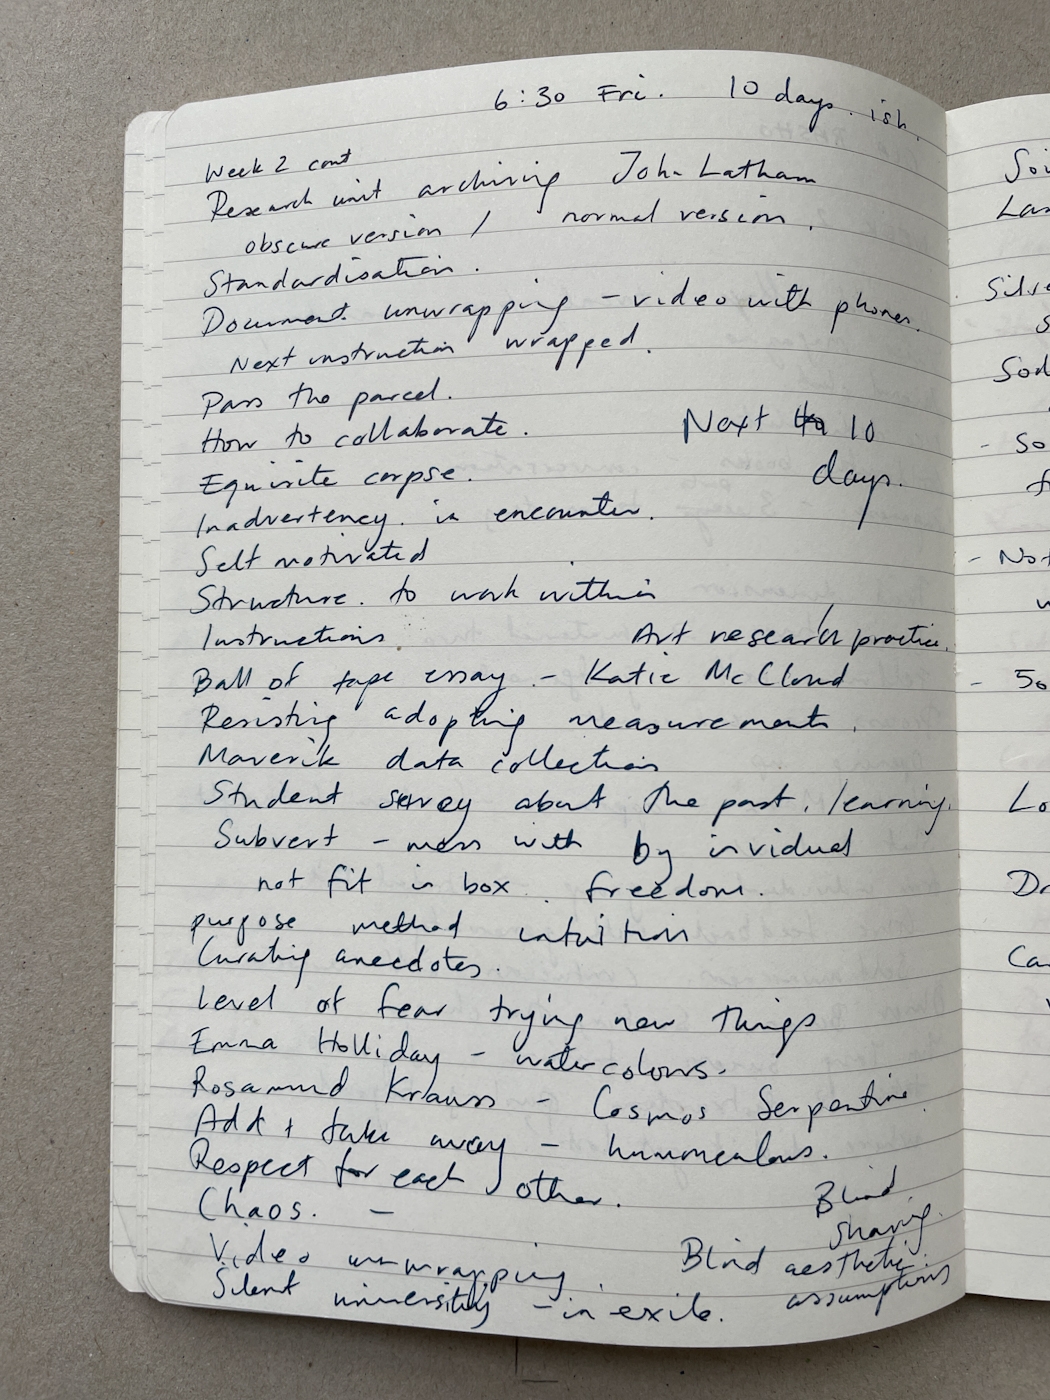 6:30 Fri. 10 days. ish.
Week 2 cont
Research unit archiving John Latham
obscure version / normal version.
Standardisation.
Document unwrapping - video with phones.
Next instruction wrapped.
Pass the parcel.
How to collaborate.
Next 10
Equisite corpse.
days.
Inadvertency. in encounter.
Self motivated
Structure. to work within
Instructions
Art research/practice.
Ball of tape essay - Katie McCloud
Resisting adopting measurements.
Maverik data collection
Student survey about the past, learning.
Subvert - mess with by invidual
not fit in box. freedom.
purpose method intuition
Curating anecdotes.
Level of fear trying new things
Emma Holliday - watercolours.
Rosamund Krauss - Cosmos Serpentine.
Add + take away -
Respect for each other.
Chaos. -
Blind
sharing.
Video unwrapping.
Blind aesthetic
assumptions
Silent university - in exile.
Soi
Las
Silve
s
Sod
- So
f
- Not
w
- So
Lo
Dr
Ca